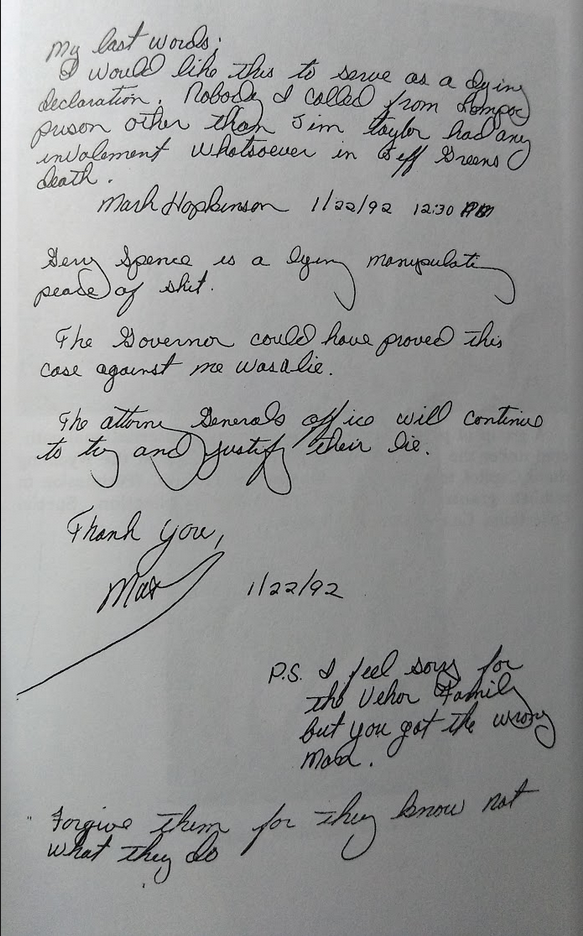 My last words;
I would like this to serve as a dying
declaration. Nobody I called from Lompoc
prison other than Jim Taylor had any
invalement whatsoever in Jeff Greens
death.
Mark Hopkinson 1/22/92 12:30 PM
Gerry Spence is a lying manipulati
pease of shit.
The Governor could have proved this
case against me was a lie.
The attorny Generals office will continue
to try and justify their lie.
Thank you,
Mark 1/22/92
P.S. I feel sorry for
the Vehar Family
but you got the wrong
man.
"Forgive them for they know not
what they do